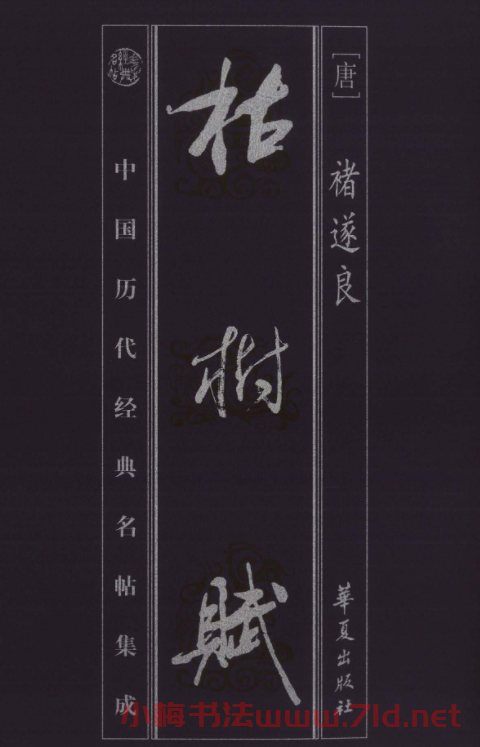 [唐]
褚遂良
華夏出版社
枯樹賦
中国历代经典名帖集成
小梅书法www.7ld.net